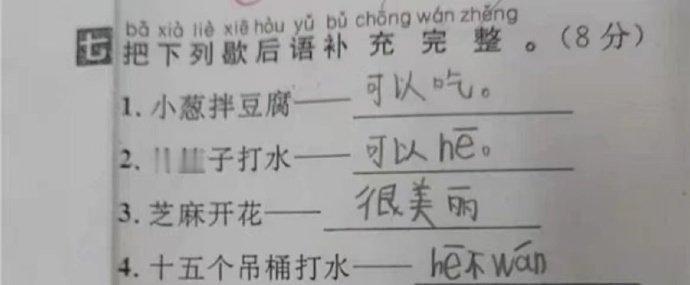 bǎ xià liè xiē hòu yǔ bǔ chōng wán zhěng
五 把下列歇后语补充完整。(8分)
1. 小葱拌豆腐——可以吃。
2. 子打水——可以hē。
3. 芝麻开花——很美丽
4. 十五个吊桶打水——hē不wán